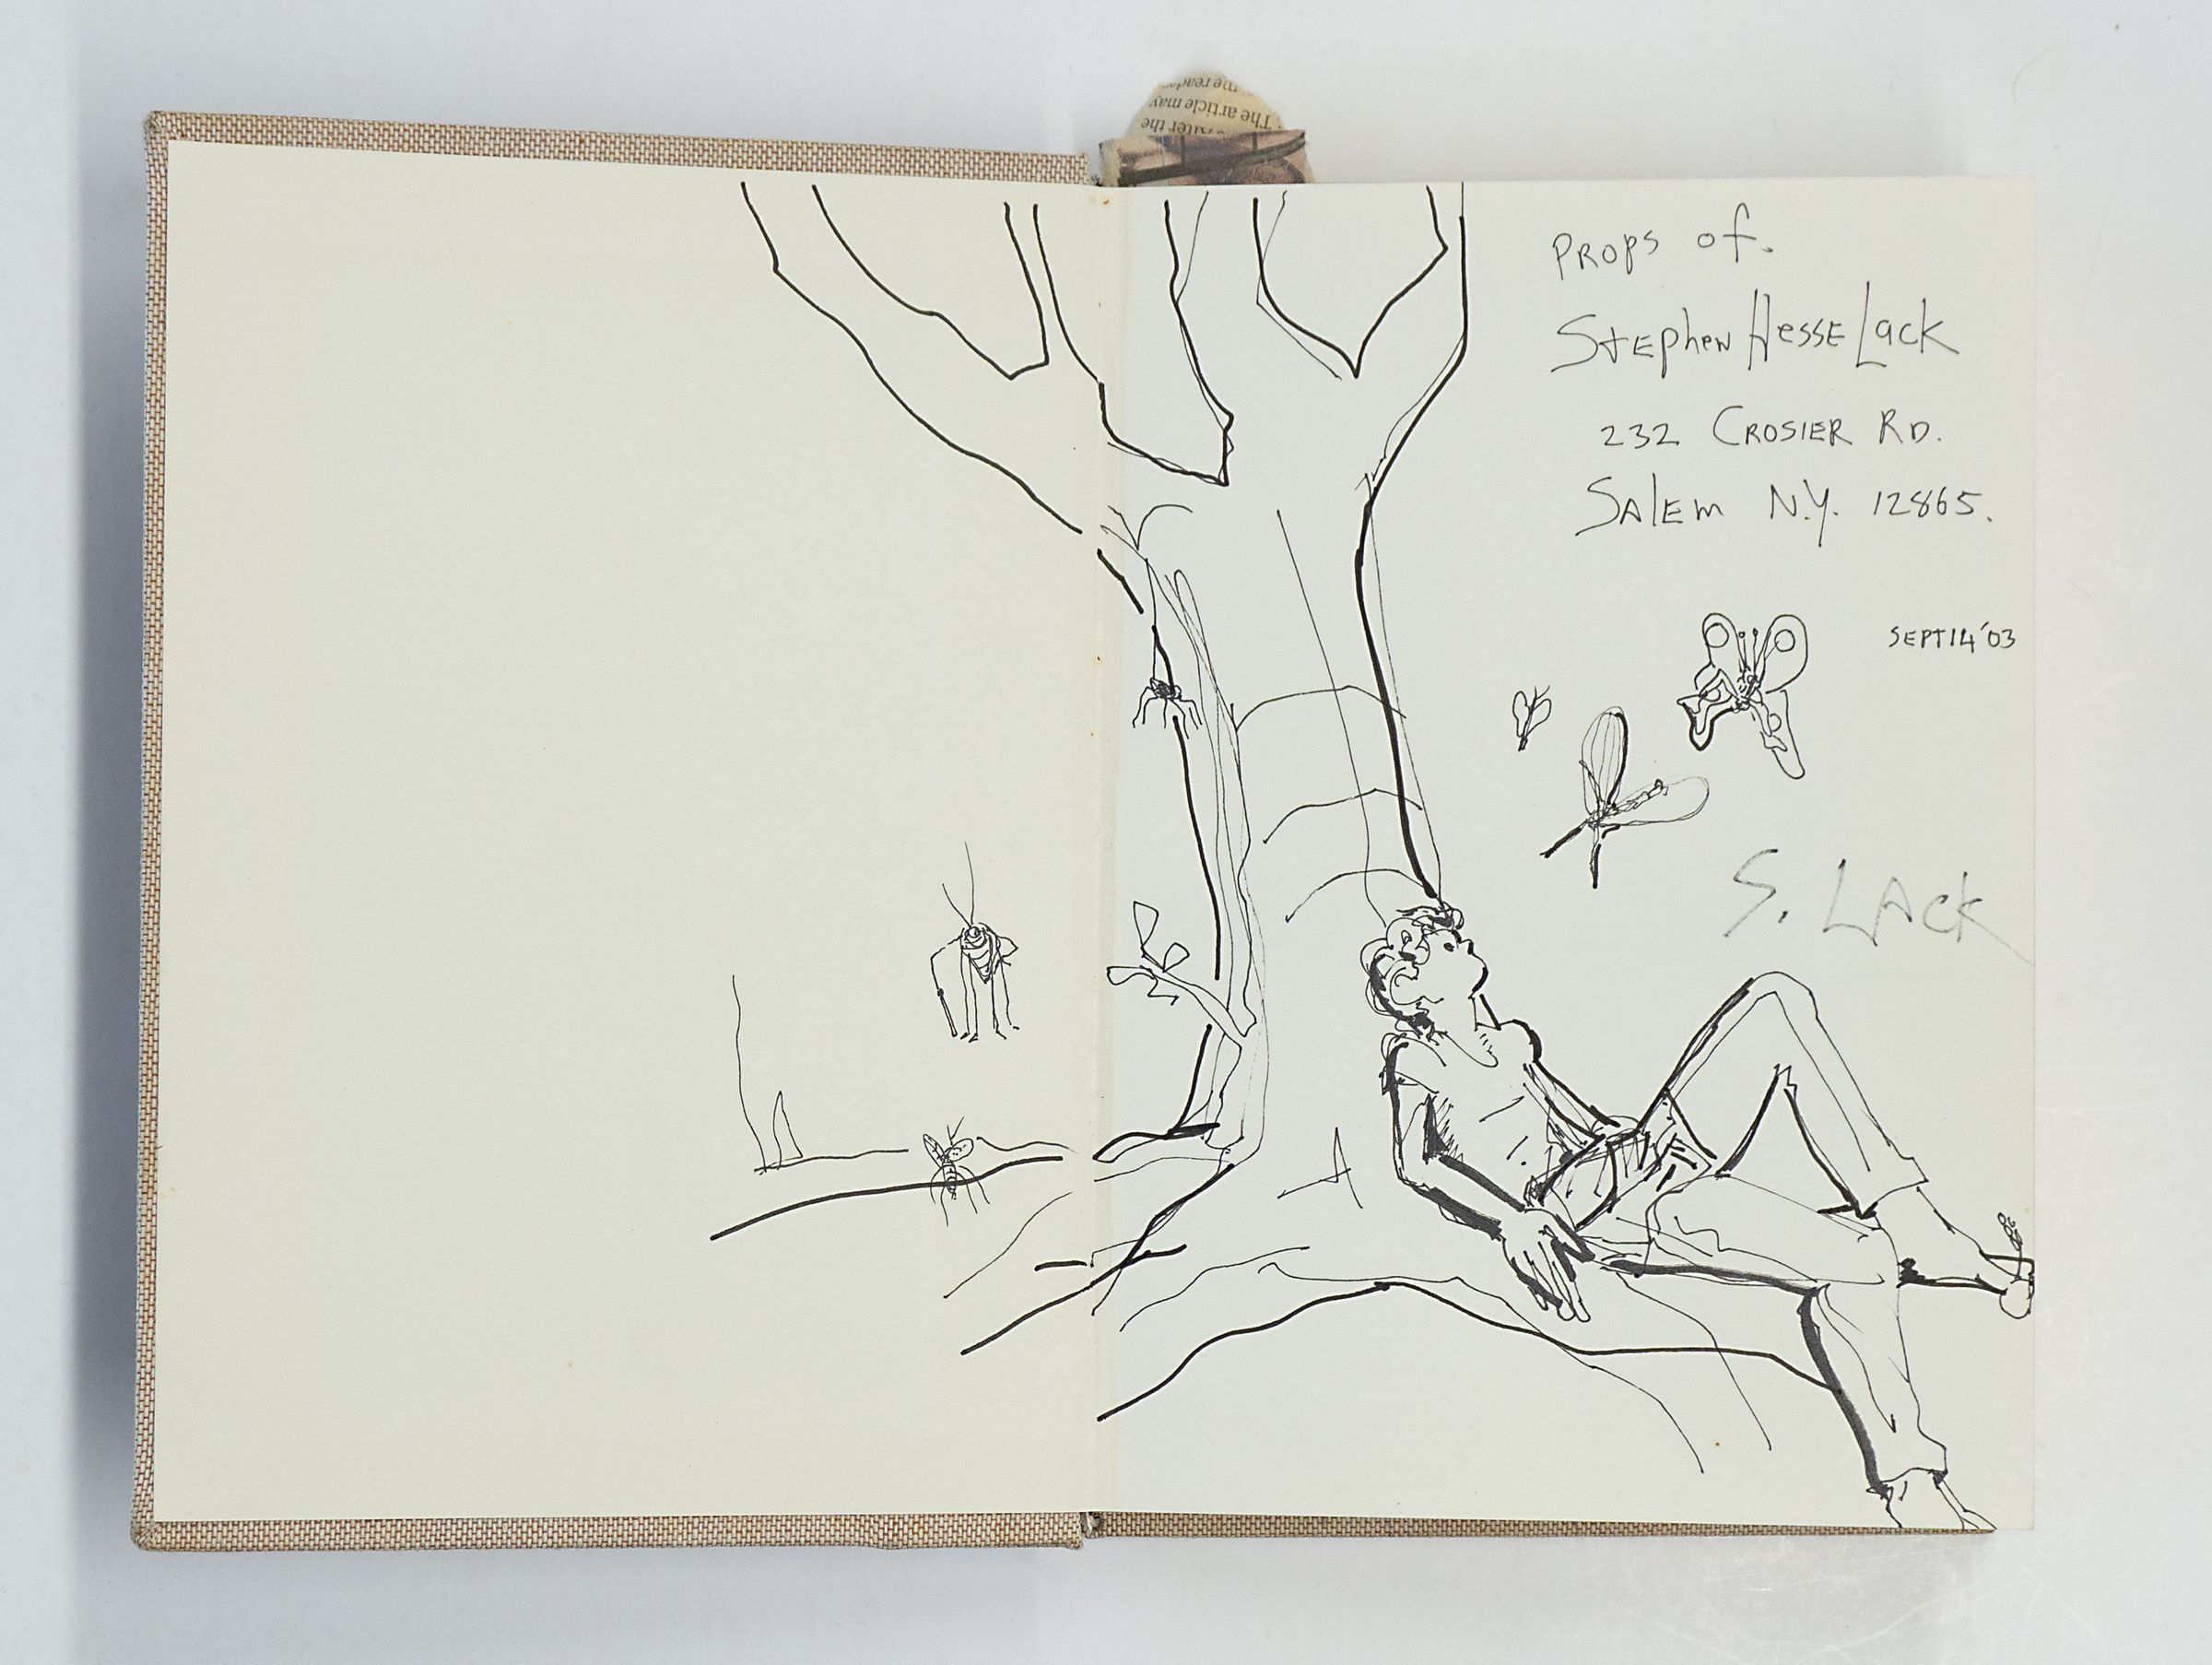 me reade
The article may
After the
Props of.
Stephen Hesse Lack
232 Crosier Rd.
Salem N.Y. 12865.
SEPT 14 '03
S. Lack